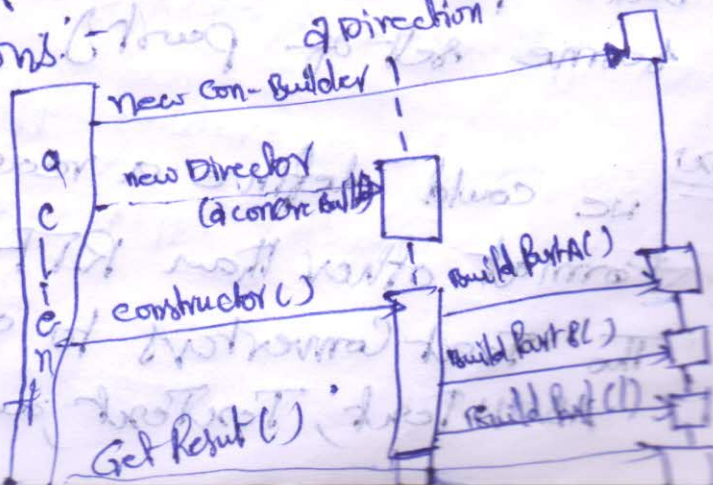 ons:-
a Direction
new Con-Builder
new Director
(a concrc Buil)
a client
constructor()
Build PartA()
Build Part B()
Build Part()
Get Result()